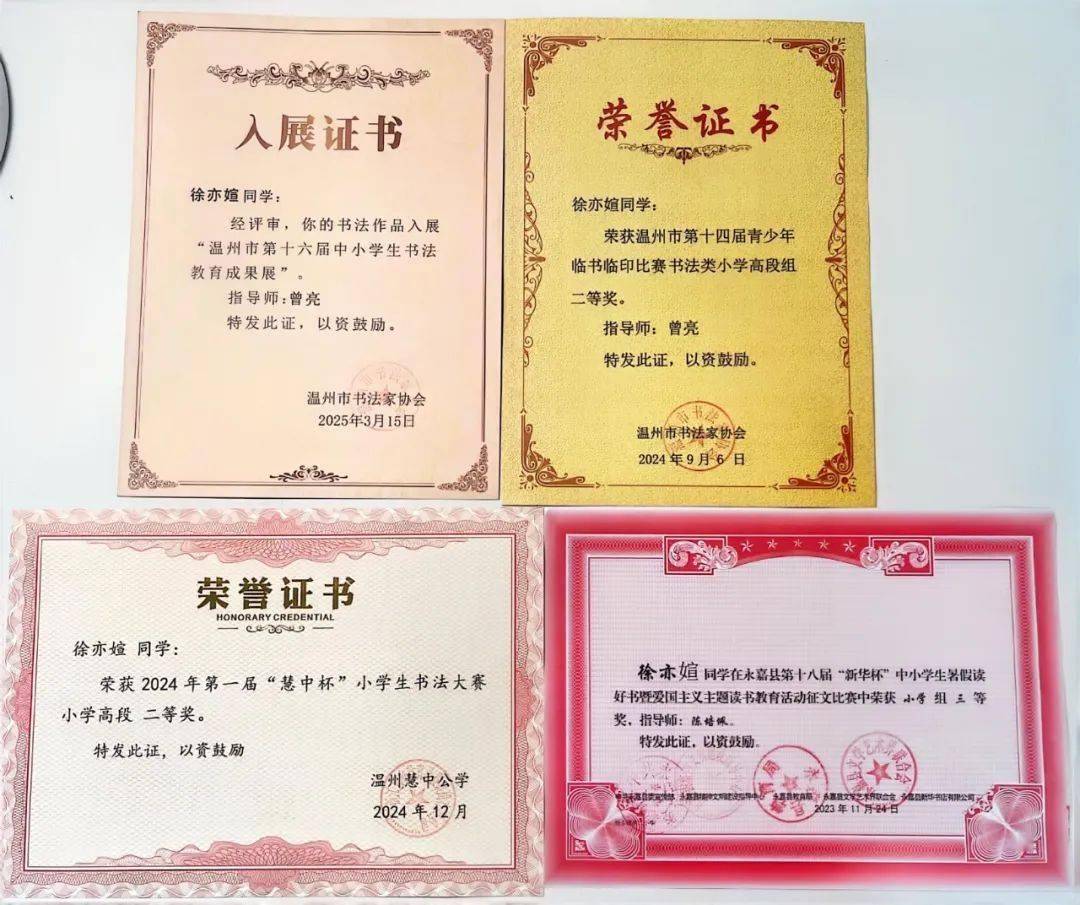 入展证书
徐亦媗同学：
经评审，你的书法作品入展
“温州市第十六届中小学生书法
教育成果展”。
指导师：曾亮
特发此证，以资鼓励。
温州市书法家协会
2025年3月15日
荣誉证书
徐亦媗同学：
荣获温州市第十四届青少年
临书临印比赛书法类小学高段组
二等奖。
指导师：曾亮
特发此证，以资鼓励。
温州市书法家协会
2024年9月6日
荣誉证书
HONORARY CREDENTIAL
徐亦媗 同学：
荣获 2024 年第一届“慧中杯”小学生书法大赛
小学高段 二等奖。
特发此证，以资鼓励
温州慧中公学
2024年12月
徐亦媗同学在永嘉县第十八届“新华杯”中小学生暑假读
好书暨爱国主义主题读书教育活动征文比赛中荣获 小学 组 三 等
奖，指导师：陈培佩。
特发此证，以资鼓励。
永嘉县教育局 永嘉县文学艺术界联合会 永嘉县新华书店有限公司
2023年11月24日